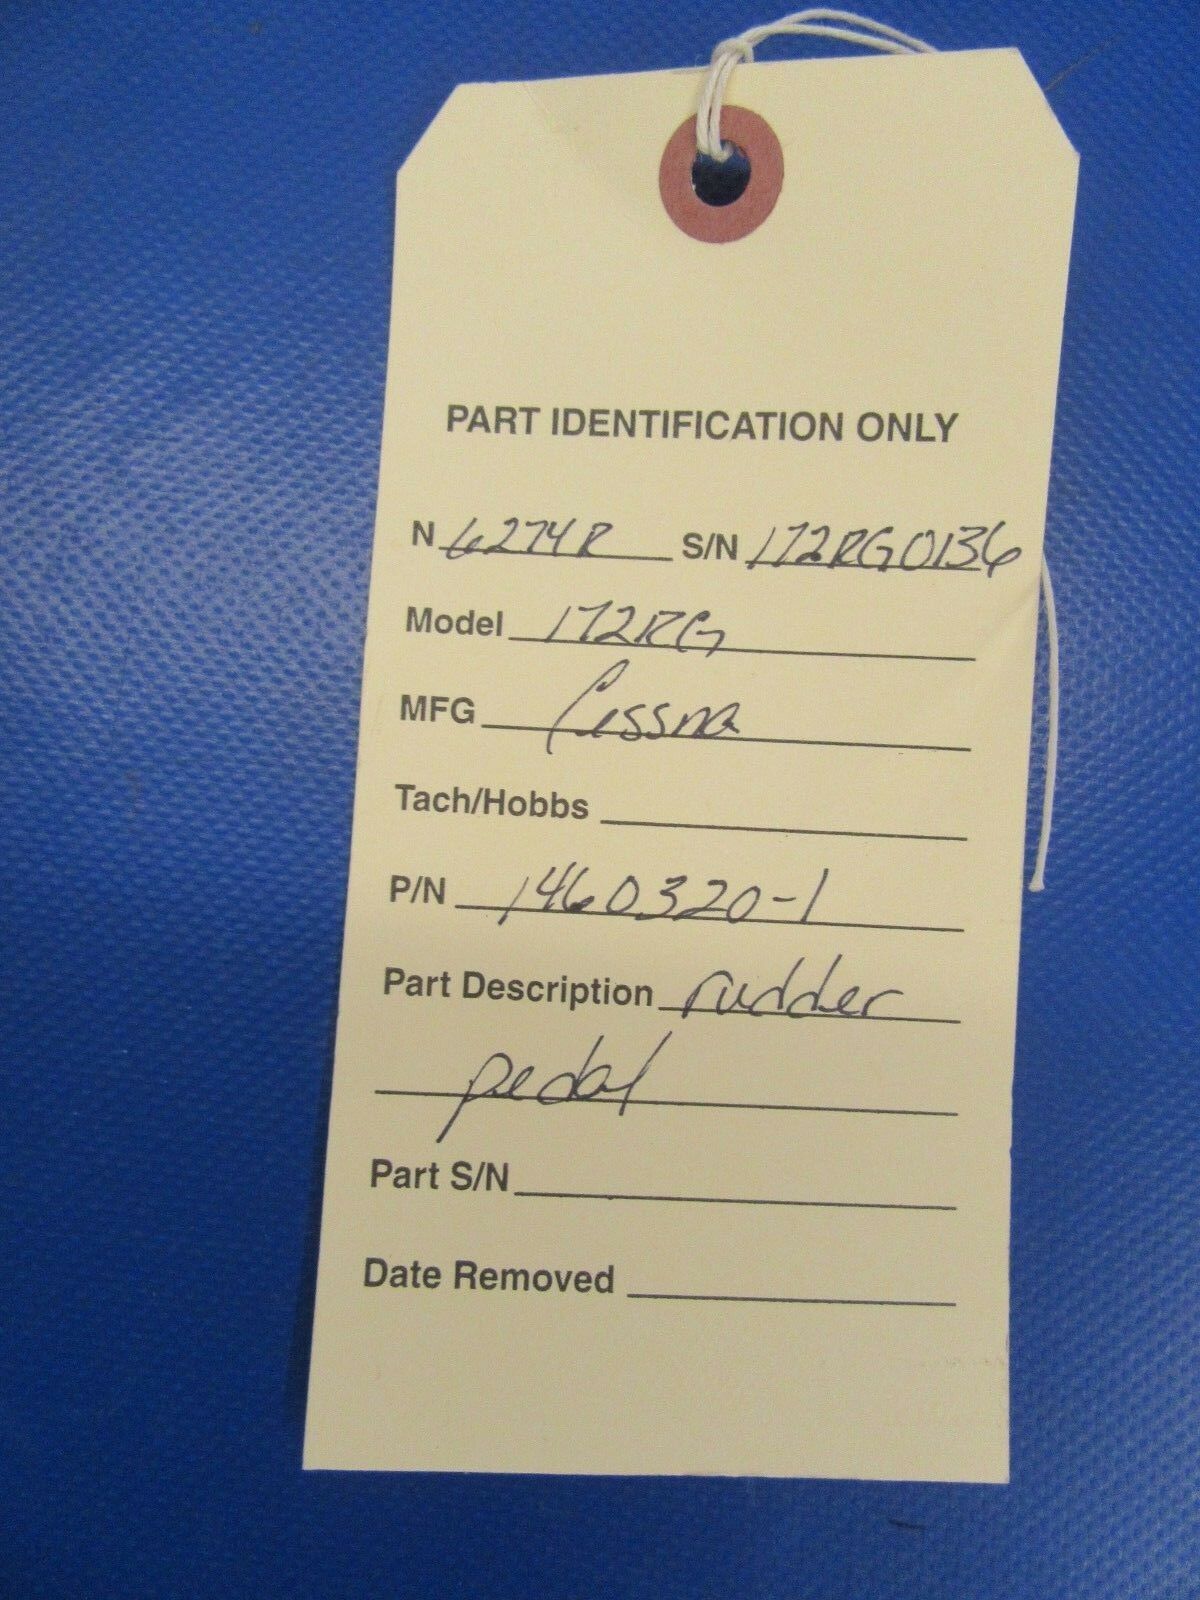 PART IDENTIFICATION ONLY
N 6274R S/N 172RG0136
Model 172RG
MFG Cessna
Tach/Hobbs
P/N 1460320-1
Part Description rudder
pedal
Part S/N
Date Removed